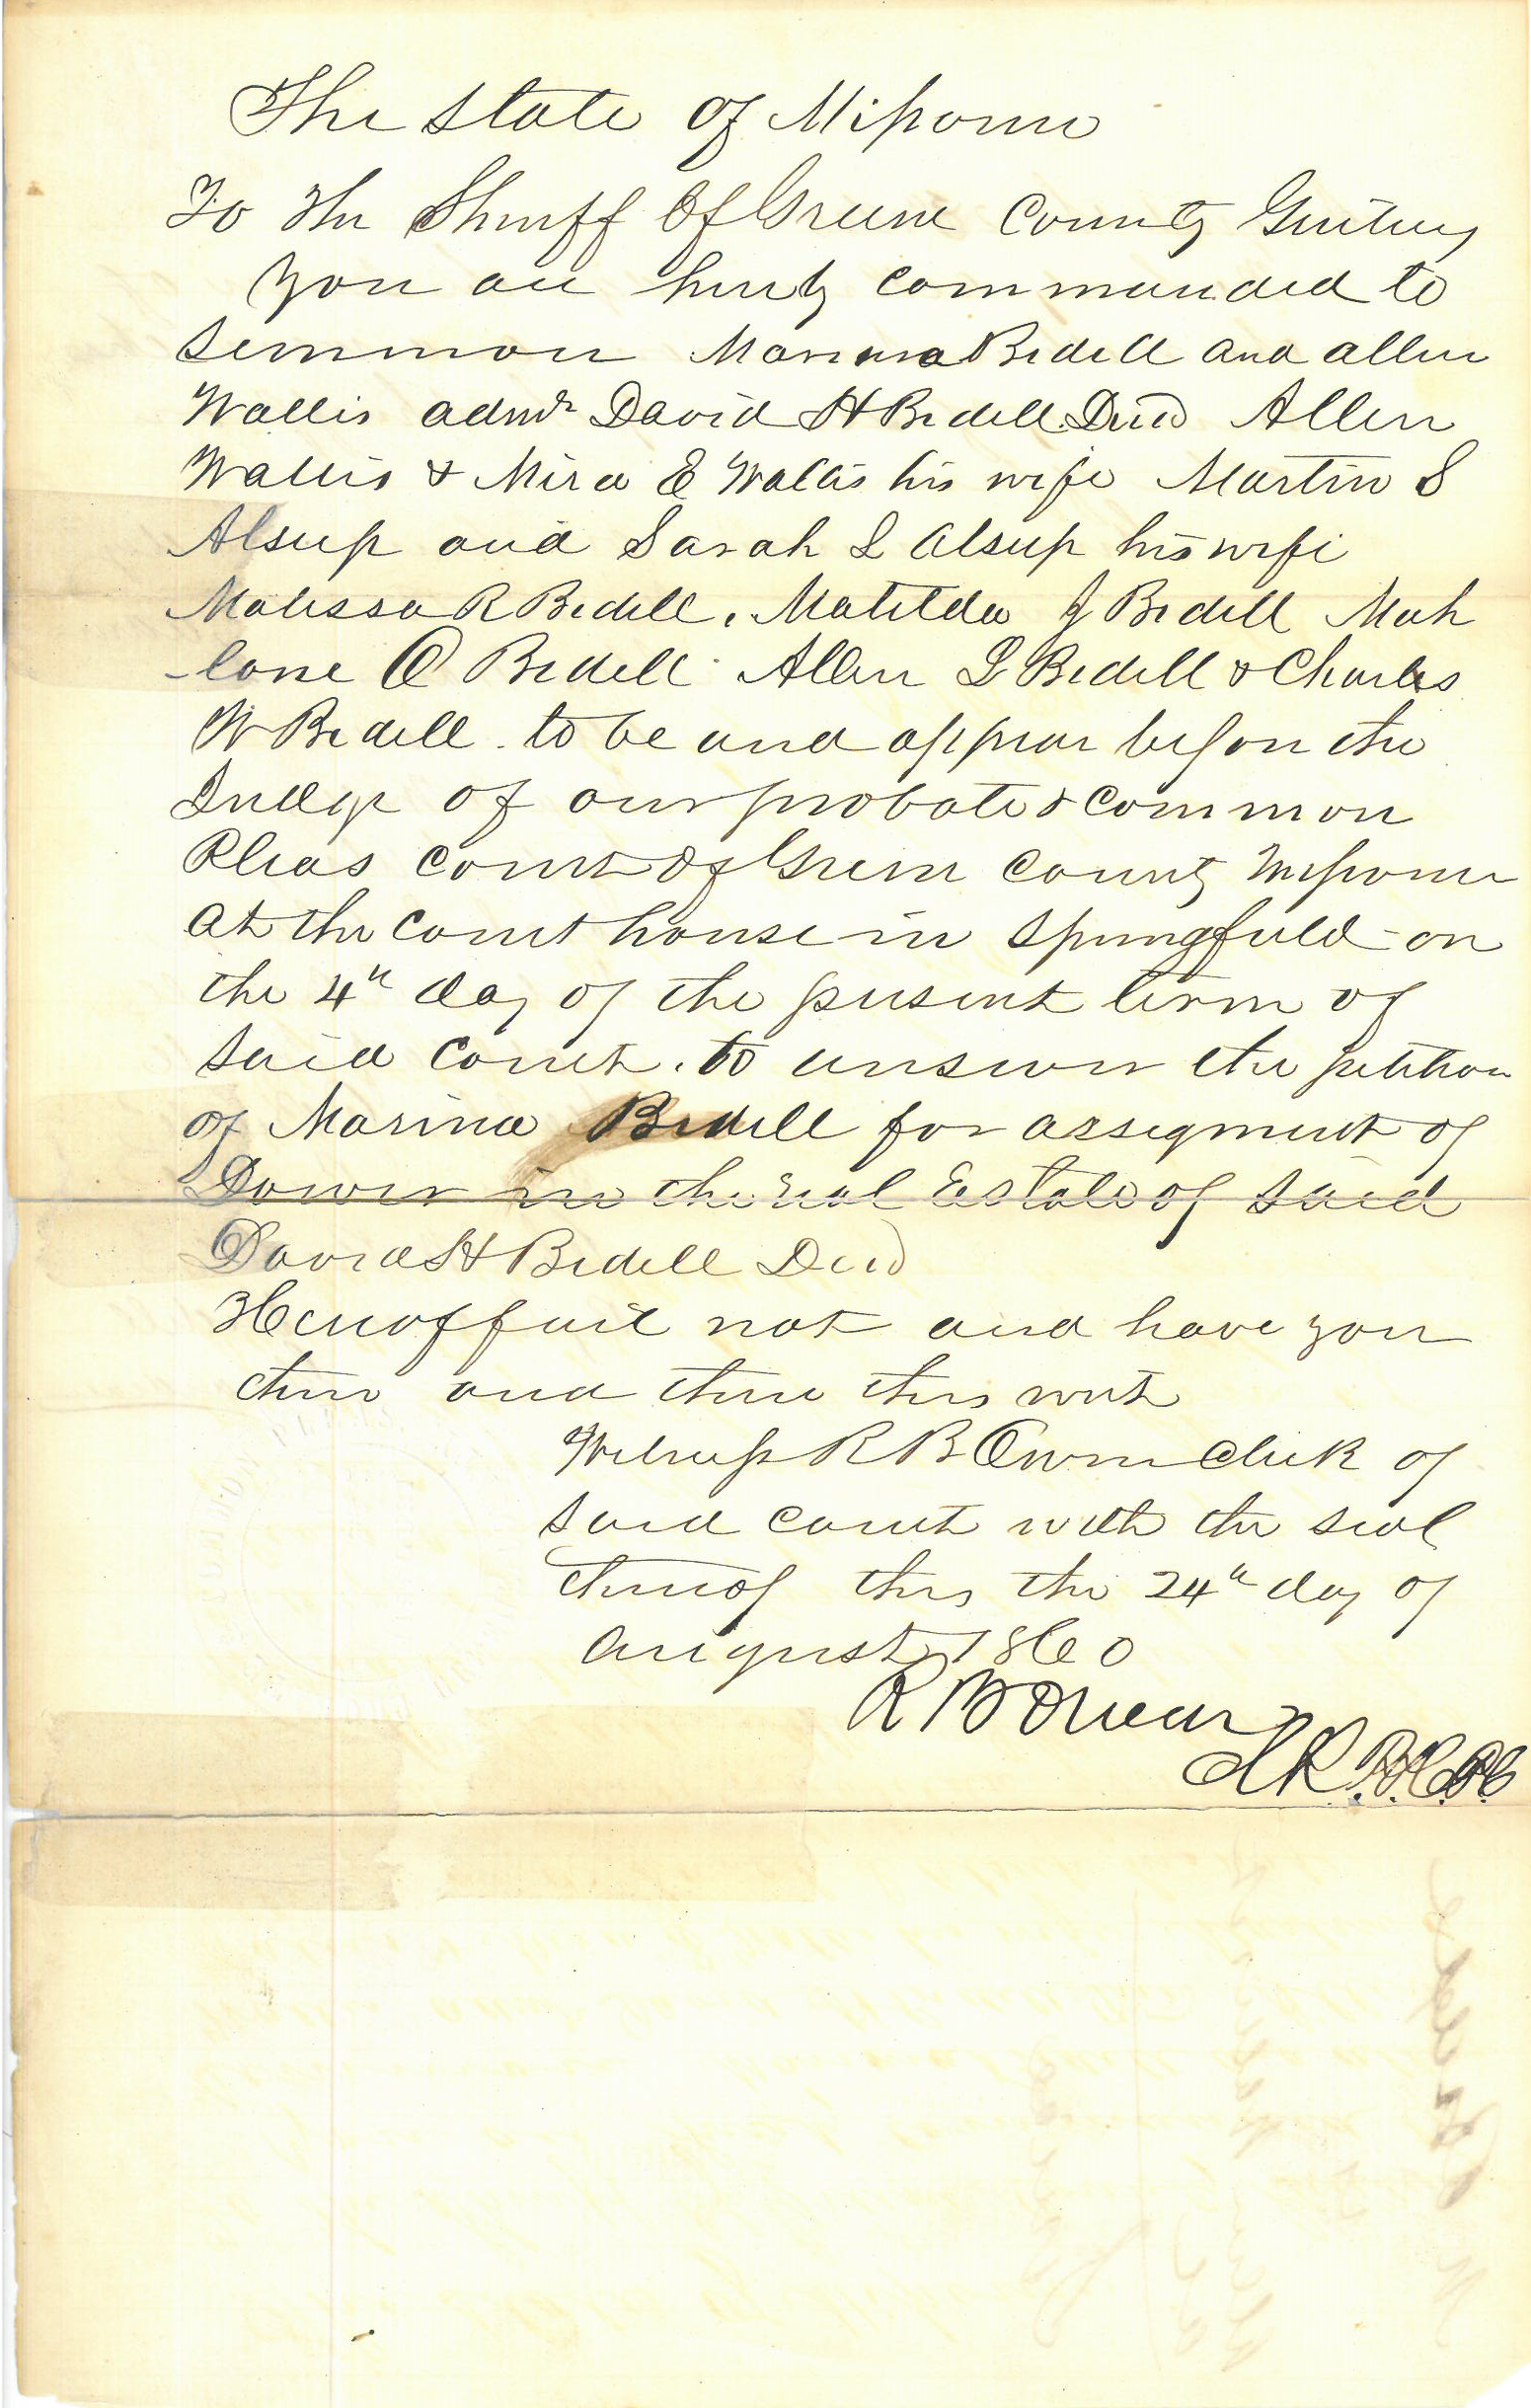 The State of Missouri
To The Sheriff Of Greene County Greeting
you are hereby commanded to
summon Marina Bedell and Allen
Wallis admr David H Bedell Decd Allen
Wallis & Mira E Wallis his wife Martin S
Alsup and Sarah L Alsup his wife
Malissa R Bedell, Matilda J Bedell Mah
-lone O Bedell Allen L Bedell & Charles
W Bedell to be and appear before the
Judge of our probate & Common
Pleas Court of Greene County Missouri
at the Court house in Springfield on
the 4th day of the present term of
said Court. to answer the petition
of Marina Bedell for assigment of
Dower in the real Estate of said
David H Bedell Decd
Hereof fail not and have you
then and there this writ
Witness R B Owen Clerk of
said Court with the seal
thereof this the 24th day of
August 1860
R B Owen